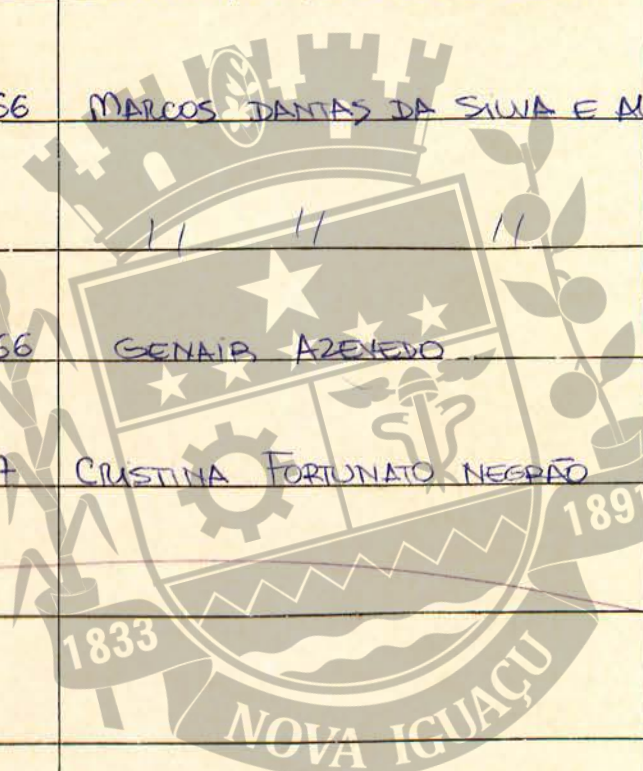 66 MARCOS DANTAS DA SILVA E
11 11 11
66 GENAIR AZEVEDO
7 CRISTINA FORTUNATO NEGRÃO
1833
189
NOVA IGUAÇU